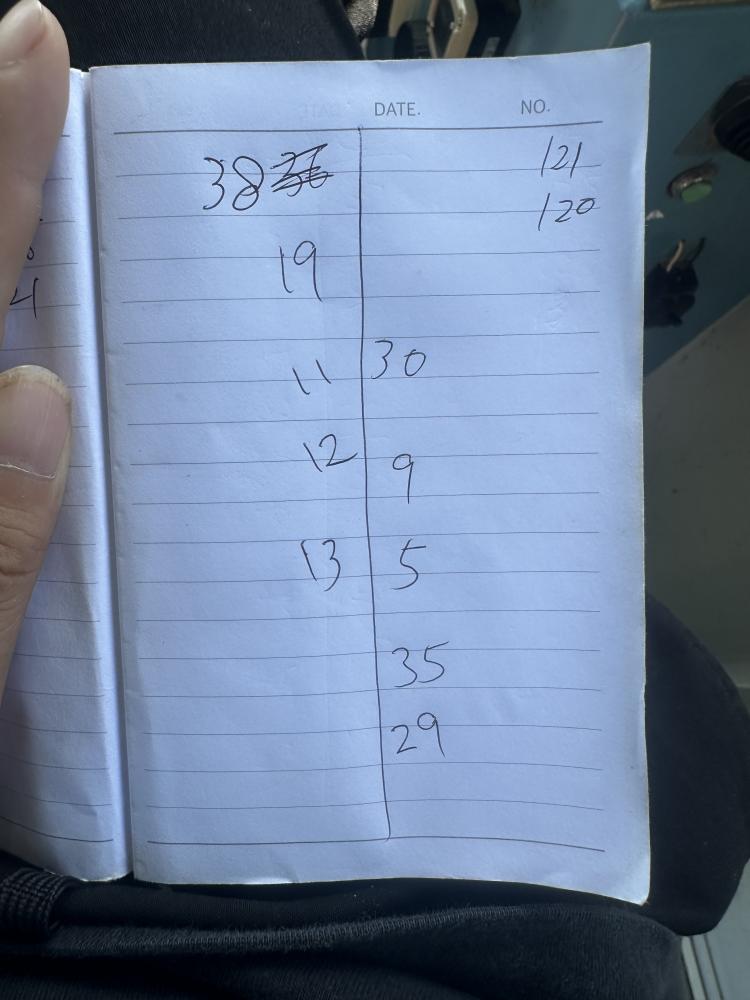 DATE. NO.
38 121
120
19
11 30
12 9
13 5
35
29